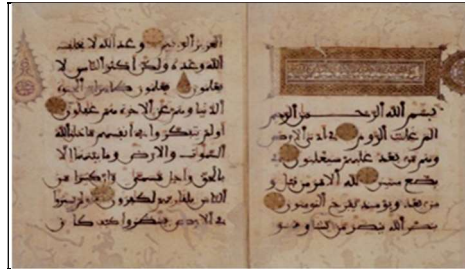 بسم الله الرحمن الرحيم
الم غلبت الروم في ادنى الارض
وهم من بعد غلبهم سيغلبون في
بضع سنين لله الامر من قبل و
من بعد ويومئذ يفرح المومنون
بنصر الله ينصر من يشا وهو
العزيز الرحيم وعد الله لا يخلف
الله وعده ولكن اكثر الناس لا
يعلمون يعلمون ظاهرا من الحيوة
الدنيا وهم عن الاخرة هم غفلون
اولم يتفكروا في انفسهم ما خلق الله
السموت والارض وما بينهما الا
بالحق واجل مسمى وان كثيرا من
الناس بلقاى ربهم لكفرون اولم يسيروا
في الارض فينظروا كيف كان